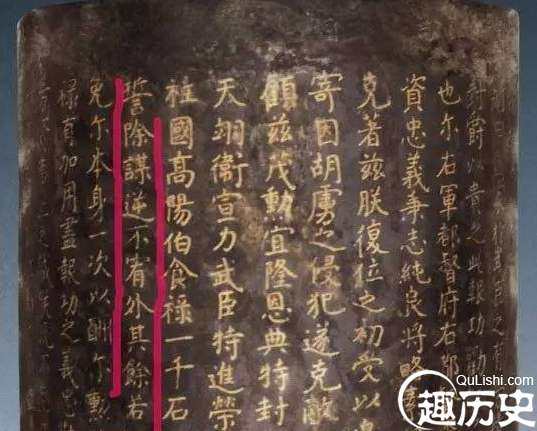 封爵以貴之此報功勸
也尔右軍都督府右都
資忠義秉志純良將略
克著兹朕復位之初受以
寄因胡虜之侵犯遂克敵
顧兹茂勳宜隆恩典特封
天翊衛宣力武臣特進榮
柱國高陽伯食祿一千石
誓除謀逆不宥外其餘若
免尔本身一次以酬尔勲
祿有加用盡報功之義
QuLishi.com
趣历史